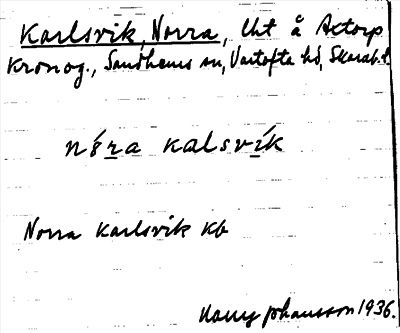 Karlsvik, Norra, lht å Axtorp
Kronog., Sandhems sn, Vartofta hd, Skarab. l.
nó̱ṟa kalsvík
Norra Karlsvik kb
Harry Johansson 1936.